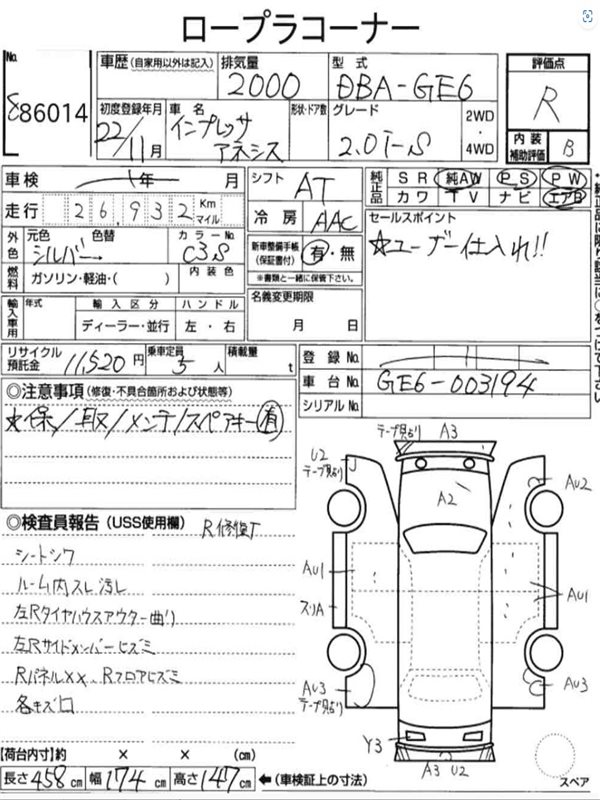 ロープラコーナー
No.
886014
車歴(自家用以外は記入)
排気量 2000
型式 DBA-GE6
評価点 R
初度登録年月 22/11月
車名 インプレッサ アネシス
形状・ドア数
グレード 2.0i-S
2WD・4WD
内装補助評価 B
車検 年 月
シフト AT
純正品 SR 純AW PS PW
カワ TV ナビ エアB
走行 26,932 Km マイル
冷房 AAC
セールスポイント
☆ユーザー仕入れ!!
外色 元色 シルバー 色替 → カラーNo. C3S
新車整備手帳(保証書付) 有・無
※書類と一緒に保管下さい。
燃料 ガソリン・軽油・( ) 内装色
名義変更期限 月 日
輸入車用 年式 輸入区分 ハンドル
ディーラー・並行 左・右
リサイクル預託金 11,520円
乗車定員 5人
積載量 t
登録No.
車台No. GE6-003194
シリアルNo.
◎注意事項(修復・不具合箇所および状態等)
☆保/取/メンテ/スペアキー有
◎検査員報告(USS使用欄) R修復T
シートシワ
ルーム内スレ汚し
左Rタイヤハウスアウター曲り
左Rサイドメンバーヒズミ
RパネルXX、Rフロアヒズミ
各キズ口
テープ貼り A3
U2
テープ貼り
A2
AU2
AU1
スリA
AU1
AU3
テープ貼り
AU3
Y3
A3 U2
スペア
【荷台内寸】約 × × (cm)
長さ458cm 幅174cm 高さ147cm ←(車検証上の寸法)